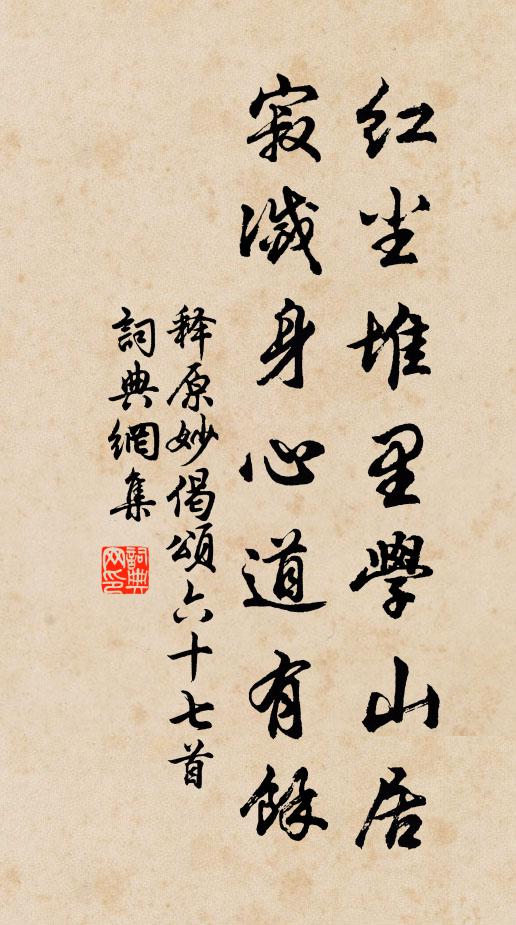 红尘堆里學山居
寂滅身心道有餘
释原妙偈頌六十七首
詞典網集
詞典網印